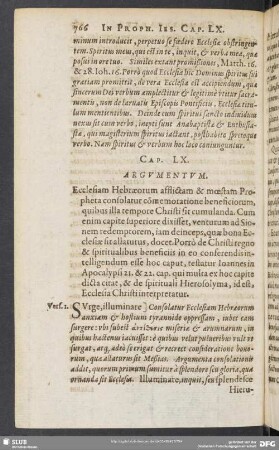 766 IN PROPH. IES. CAP. LX.
minum introducit, perpetuo se foedere Ecclesiæ obstringen-
tem. Spiritus meus, qui est in te, inquit, & verba mea, quæ
posui in ore tuo. Similes extant promissiones, Matth. 16.
& 28. Ioh. 16. Porrò quod Ecclesiæ hic Dominus spiritus sui
gratiam promittit, de vera Ecclesia est accipiendum, quæ
sincerum Dei verbum amplectitur & legitimè utitur Sacra-
mentis, non de larvatis Episcopis Pontificiis, Ecclesiæ titu-
lum mentientibus. Deinde cum spiritus sanctus individuus
nexus sit cum verbo, inepti sunt Anabaptistæ & Enthusia-
stæ, qui magisterium spiritus jactant, posthabito spretoque
verbo. Nam spiritus & verbum hoc loco conjunguntur.
CAP. LX.
ARGUMENTUM.
Ecclesiam Hebræorum afflictam & mœstam Pro-
pheta consolatur cõmemoratione beneficiorum,
quibus illa tempore Christi sit cumulanda. Cum
enim capite superiore dixisset, venturum ad Sio-
nem redemptorem, iam deinceps, quæ bona Eccl-
esiæ sit allaturus, docet. Porrò de Christi regno
& spiritualibus beneficiis in eo conferendis in-
telligendum esse hoc caput, testatur Ioannes in
Apocalypsi 21. & 22. cap. qui multa ex hoc capite
dicta citat, & de spirituali Hierosolyma, id est,
Ecclesia Christi interpretatur.
Vers. 1. SVrge, illuminare ] Consolatur Ecclesiam Hebræorum
anxiam & hostium tyrannide oppressam, jubet eam
surgere: vbi subest miseriæ & ærumnarum, in
quibus hactenus iacuisset: è quibus velut pulveribus vult ut
surgat, arq, adeò se erigat & recreet consideratione bono-
rum, quæ allaturus sit Messias. Argumenta consolationis
addit, quorum primum sumitur à splendore seu gloria, qua
ornanda sit Ecclesia. Illuminare, inquit, seu splendesce
Hieru-
SLUB
DFG